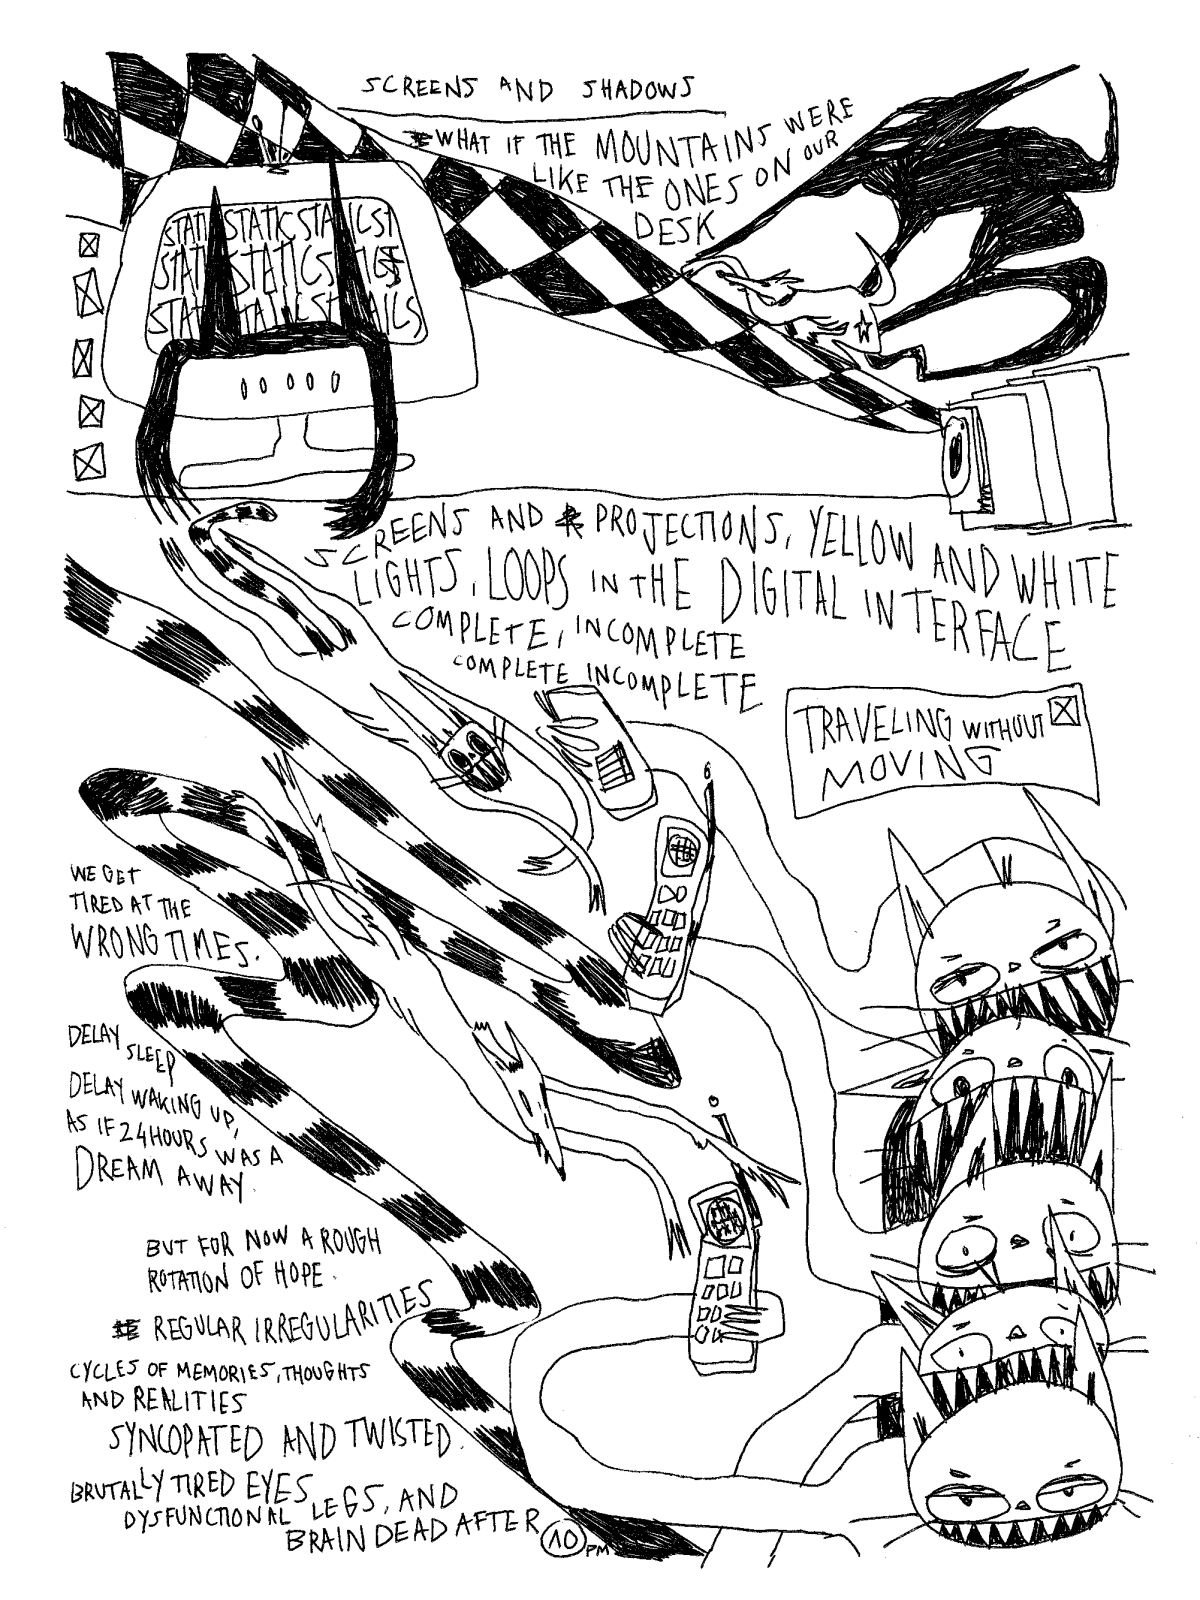 SCREENS AND SHADOWS
WHAT IF THE MOUNTAINS WERE
LIKE THE ONES ON OUR
DESK
STATIC STATIC ST
SCREENS AND PROJECTIONS, YELLOW AND WHITE
LIGHTS, LOOPS IN THE DIGITAL INTERFACE
COMPLETE, INCOMPLETE
COMPLETE INCOMPLETE
TRAVELING WITHOUT
MOVING
WE GET
TIRED AT THE
WRONG TIMES.
DELAY
SLEEP
DELAY WAKING UP,
AS IF 24HOURS WAS A
DREAM AWAY.
BUT FOR NOW A ROUGH
ROTATION OF HOPE.
REGULAR IRREGULARITIES
CYCLES OF MEMORIES, THOUGHTS
AND REALITIES
SYNCOPATED AND TWISTED.
BRUTALLY TIRED EYES,
DYSFUNCTIONAL LEGS, AND
BRAIN DEAD AFTER 10 PM